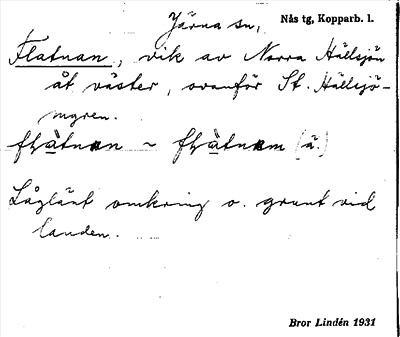 Järna sn,
Nås tg, Kopparb. l.
Flatnan, vik av Norra Hällsjön
åt väster, ovanför St. Hällsjö-
myren.
flàtnan ~ flàtnam (ä.)
Låglänt omkring o. grunt vid
landen.
Bror Lindén 1931